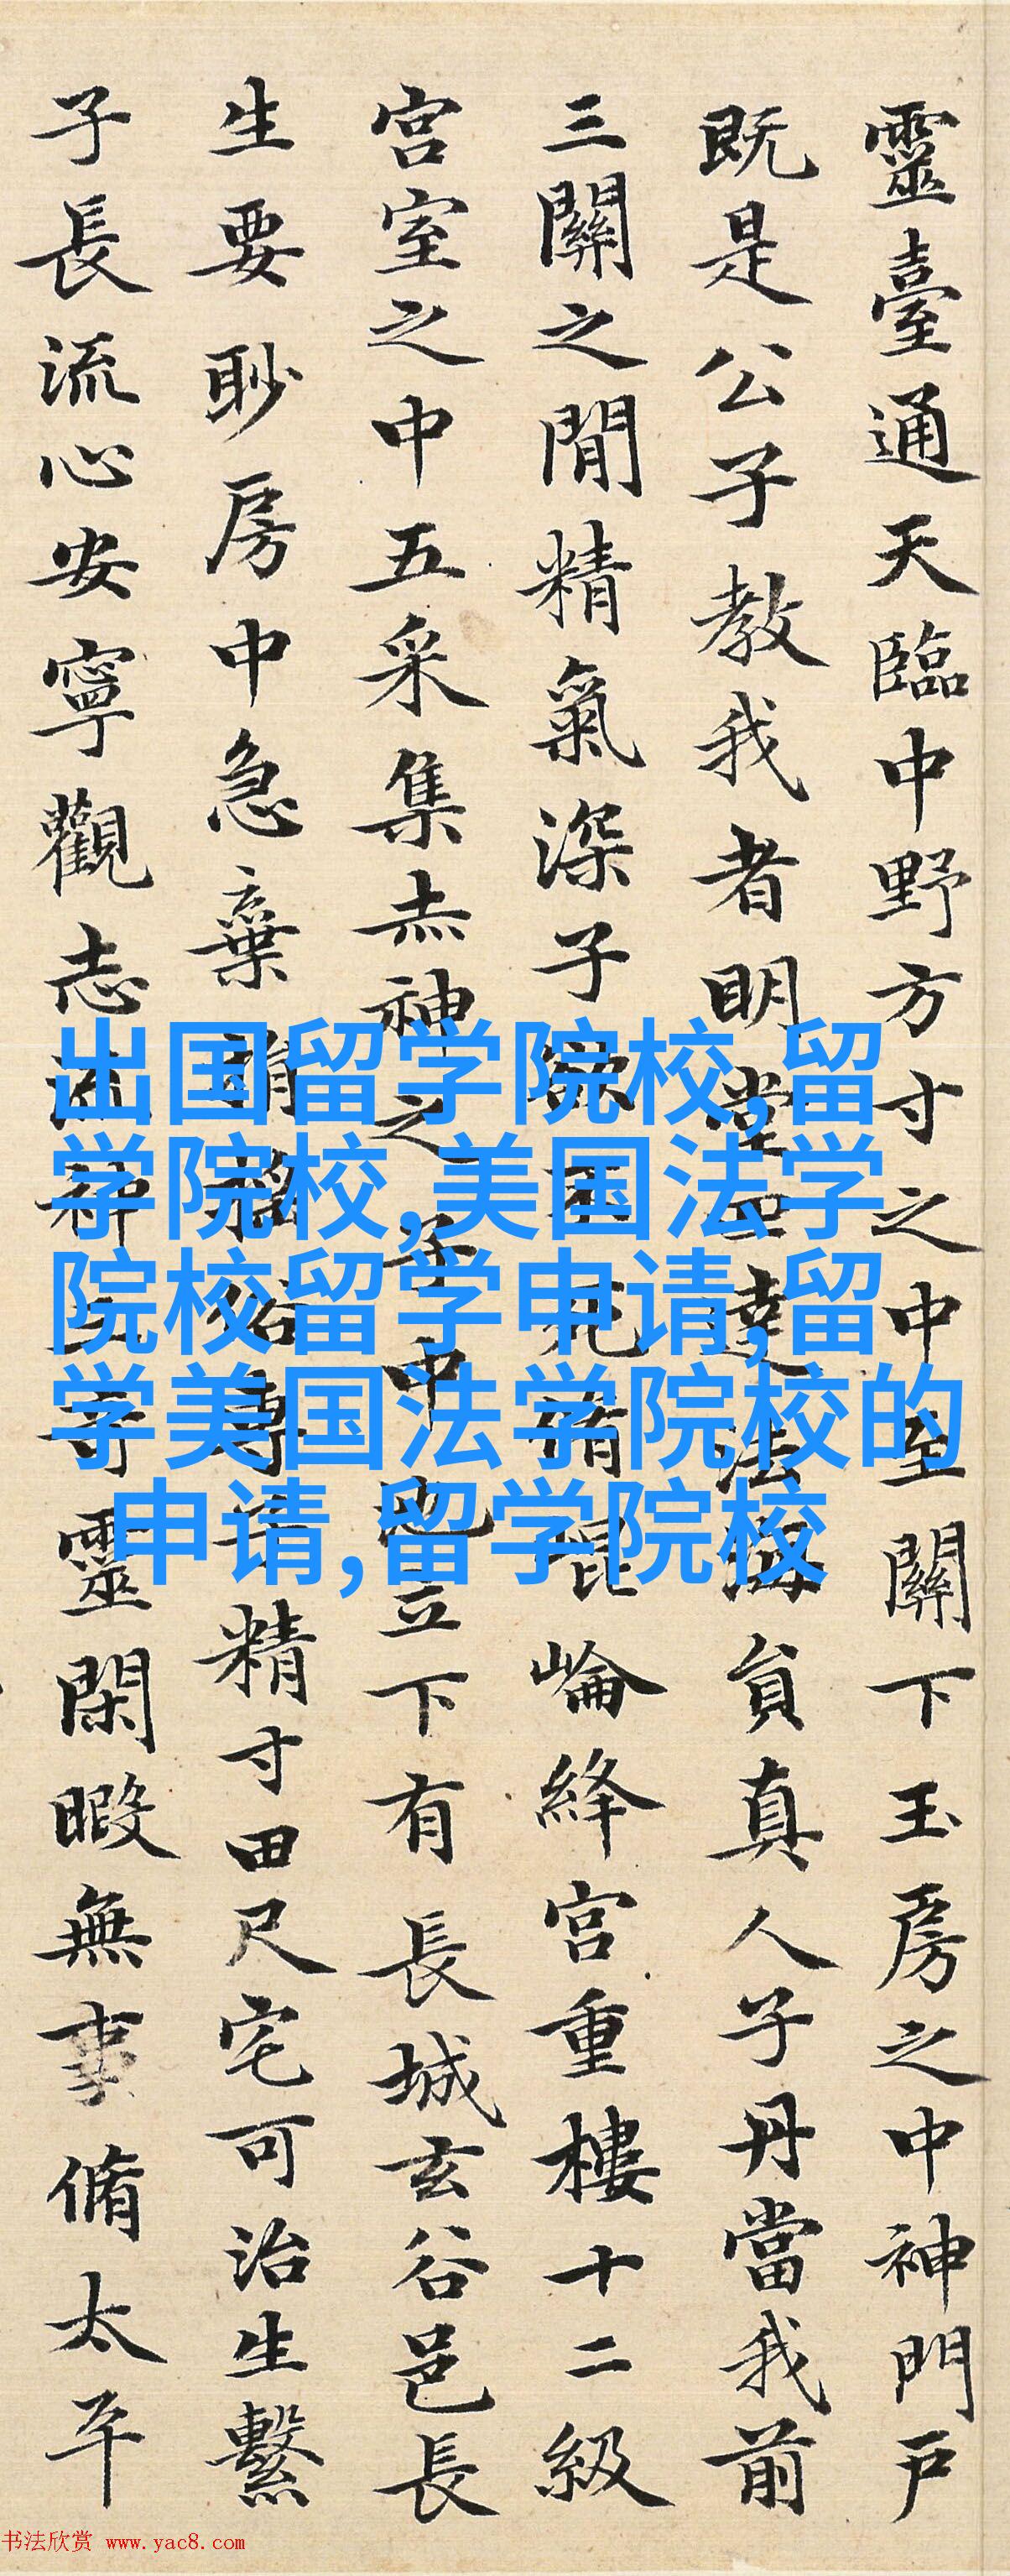 靈臺通天臨中野方寸之中至關下玉房之中神門戶
既是公子教我者明堂四達法海員真人子丹當我前
三關之閒精氣深子欲不死脩崐崘絳宮重樓十二級
宮室之中五采集赤神之子中池立下有長城玄谷邑長
生要眇房中急棄捐搖俗專子精寸田尺宅可治生繫
子長流心安寧觀志流神三奇靈閑暇無事脩太平
出国留学院校,留
学院校,美国法学
院校留学申请,留
学美国法学院校的
申请,留学院校
书法欣赏 www.yac8.com